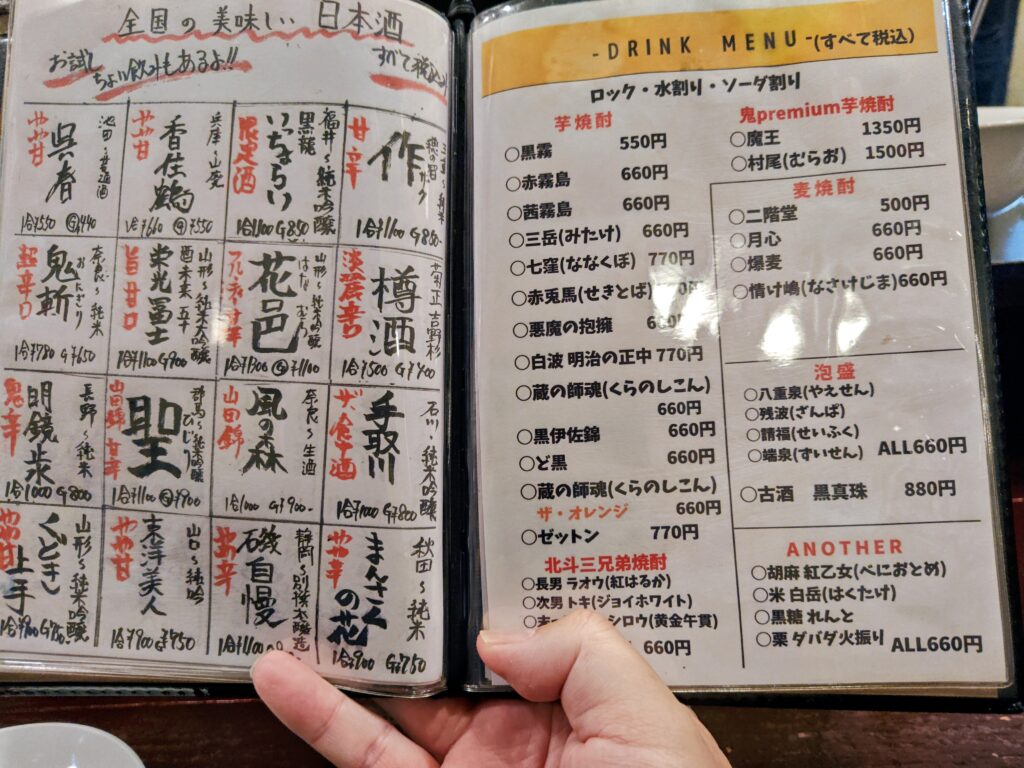 全国の美味しい 日本酒
お試し
ちょい飲みもあるよ!!
すべて税込
作
甘辛
1合¥1100 G850-
福井〜純米吟醸
黒龍
いっちょらい
限定酒
1合¥1100 G850
兵庫・山廃
香住鶴
やや甘
池田〜普通酒
呉春
やや甘
1合¥550 G¥440
樽酒
淡麗辛口
1合¥500 G¥400
山形〜純米吟醸
はなむら
花邑
1合¥1300 G¥1100
山形〜純米大吟醸
酉 未来 五十
栄光冨士
旨甘口
1合¥1100 G900
奈良〜純米
おにぎり
鬼斬
超辛口
1合¥780 G¥650
石川・純米大吟醸
手取川
ザ・食中酒
1合¥1000 G¥800
奈良〜生酒
風の森
山田錦
1合¥1000 G¥900-
群馬〜純米吟醸
ひじり
聖
山田錦 甘辛
1合¥1100 G¥900
長野〜純米
明鏡止水
鬼辛
1合¥1000 G800
秋田〜純米
まんさくの花
やや辛
1合¥900 G¥750
静岡〜別撰本醸造
磯自慢
やや辛
1合¥1100
山口〜純吟
東洋美人
やや甘
1合¥900 G¥750
山形〜純米吟醸
くどき上手
やや甘
1合¥900
-DRINK MENU-(すべて税込)
ロック・水割り・ソーダ割り
芋焼酎
○黒霧 550円
○赤霧島 660円
○茜霧島 660円
○三岳(みたけ) 660円
○七窪(ななくぼ) 770円
○赤兎馬(せきとば)
○悪魔の抱擁
○白波 明治の正中 770円
○蔵の師魂(くらのしこん)
660円
○黒伊佐錦 660円
○ど黒 660円
○蔵の師魂(くらのしこん)
ザ・オレンジ 660円
○ゼットン 770円
北斗三兄弟焼酎
○長男 ラオウ(紅はるか)
○次男 トキ(ジョイホワイト)
シロウ(黄金千貫)
660円
鬼premium芋焼酎
○魔王 1350円
○村尾(むらお) 1500円
麦焼酎
○二階堂 500円
○月心 660円
○爆麦 660円
○情け嶋(なさけじま)660円
泡盛
○八重泉(やえせん)
○残波(ざんぱ)
○請福(せいふく)
○端泉(ずいせん) ALL660円
○古酒 黒真珠 880円
ANOTHER
○胡麻 紅乙女(べにおとめ)
○米 白岳(はくたけ)
○黒糖 れんと
○栗 ダバダ火振り ALL660円